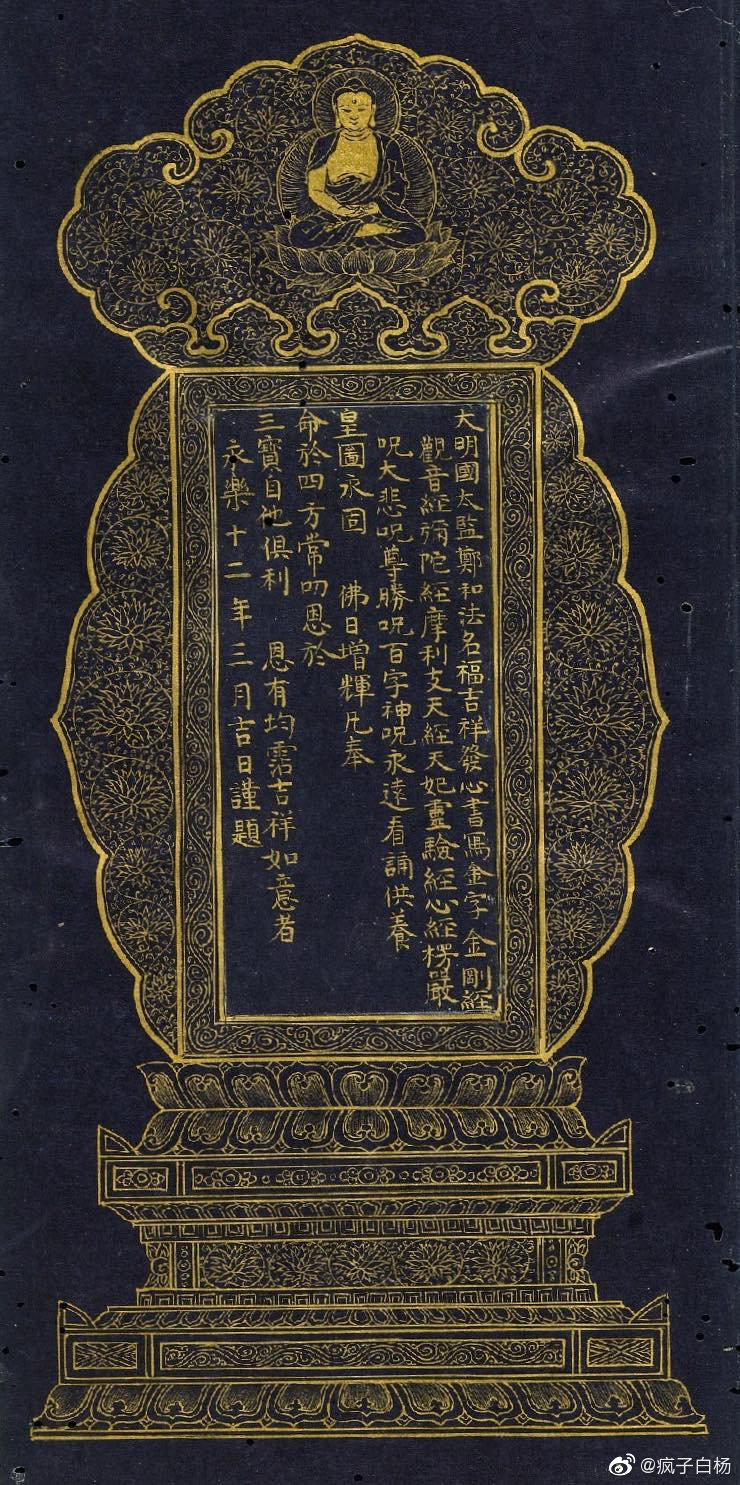 大明國太監鄭和法名福吉祥發心書寫金字 金剛經
觀音經彌陀經摩利支天經天妃靈驗經心經楞嚴
呪大悲呪尊勝呪百字神呪永遠看誦供養
皇圖永固 佛日增輝凡奉
命於四方常叨恩於
三寶自他俱利 恩有均霑吉祥如意者
永樂十二年三月吉日謹題
@疯子白杨